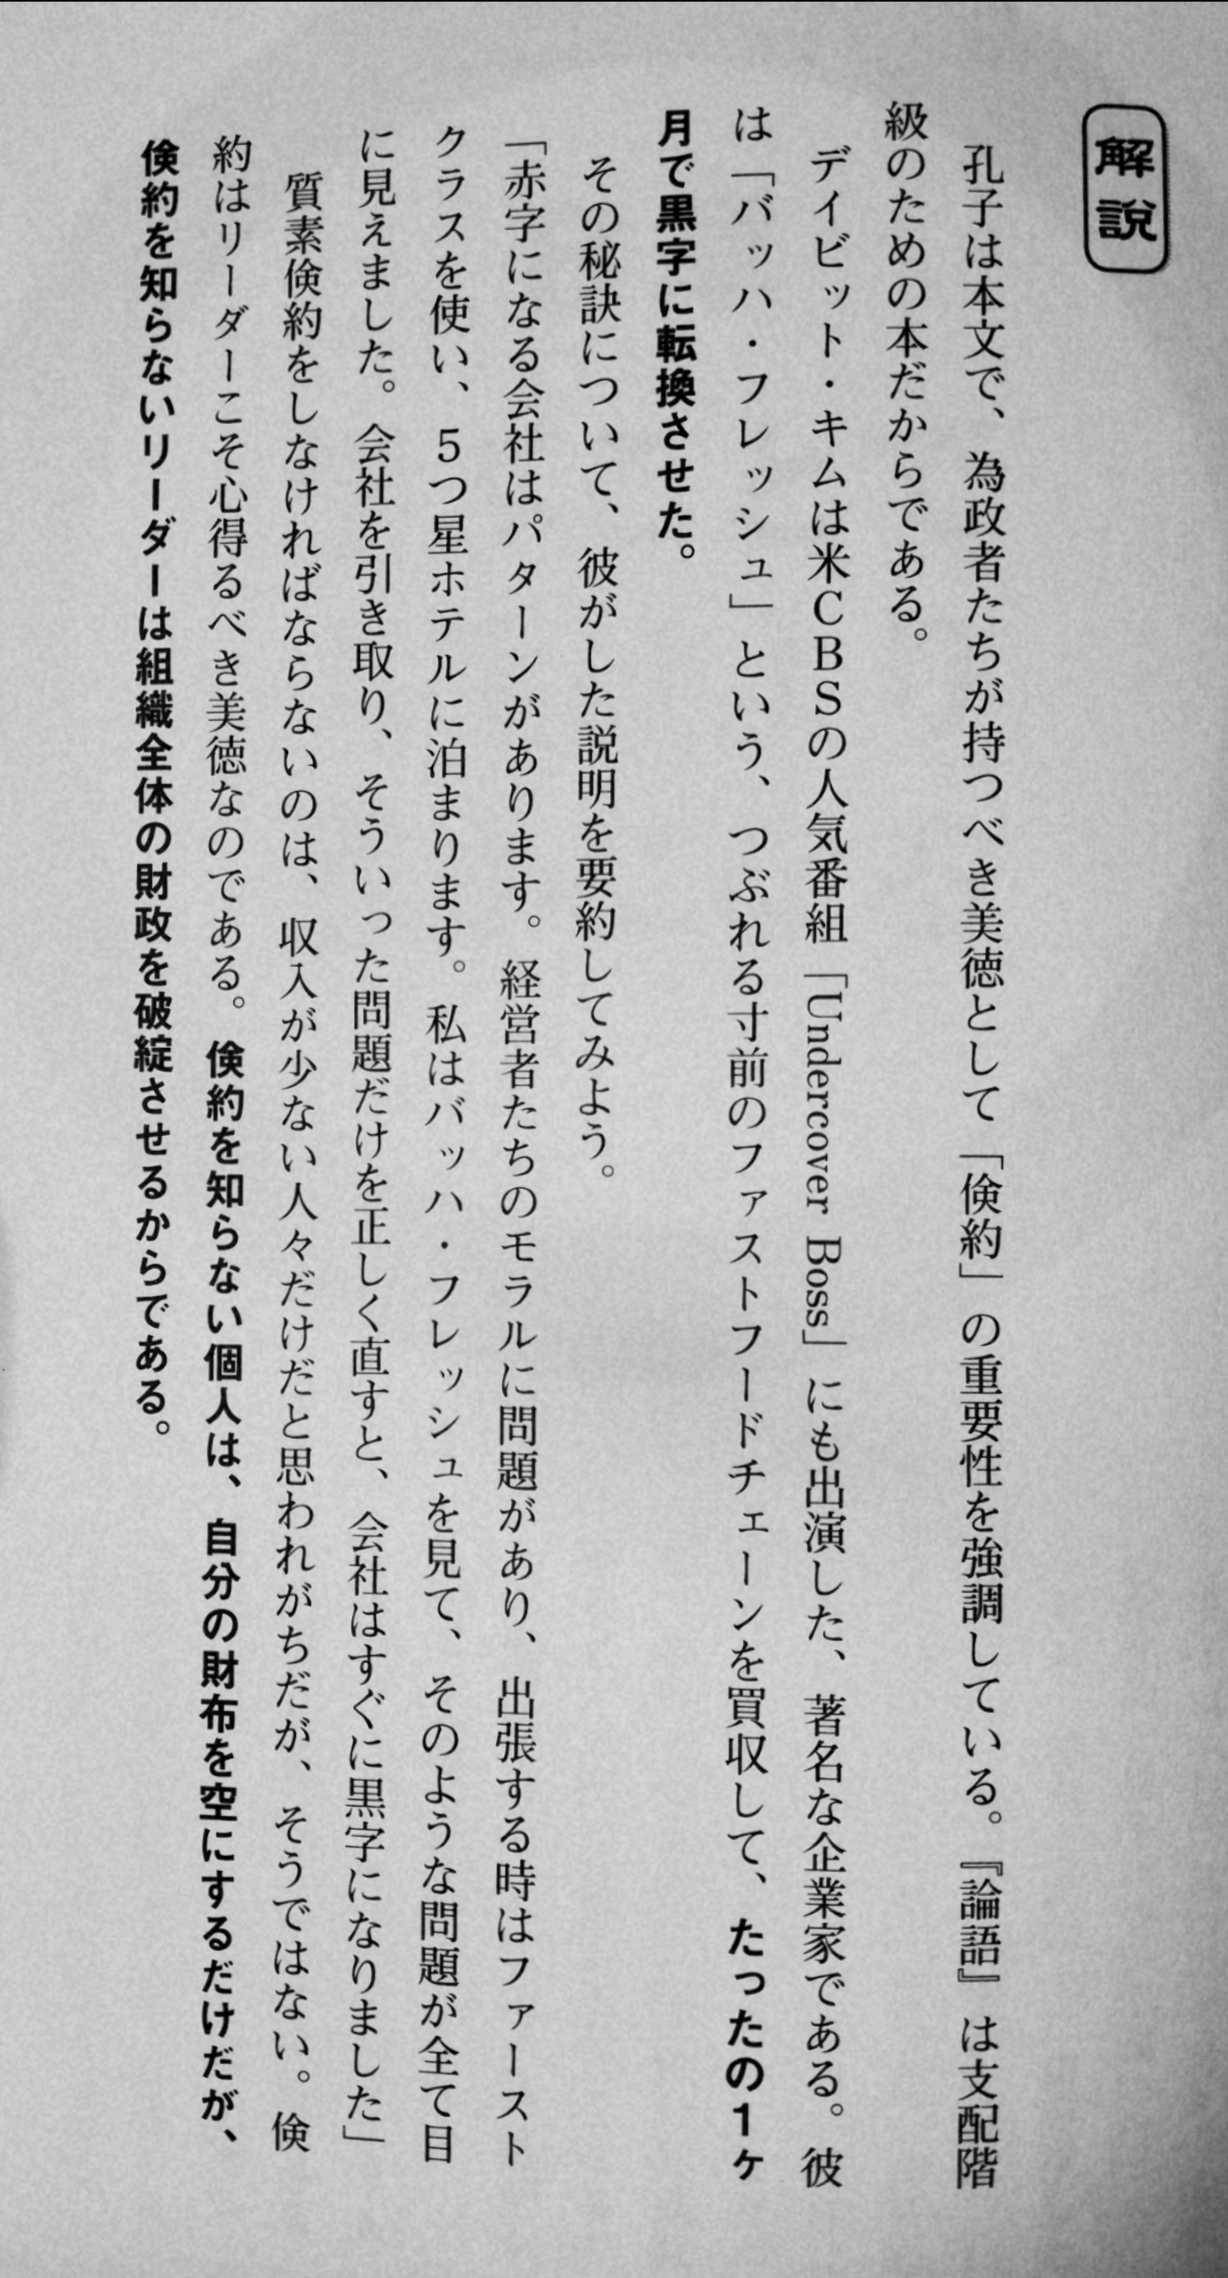 解説
孔子は本文で、為政者たちが持つべき美徳として「倹約」の重要性を強調している。『論語』は支配階
級のための本だからである。
デイビット・キムは米ＣＢＳの人気番組「Undercover Boss」にも出演した、著名な企業家である。彼
は「バッハ・フレッシュ」という、つぶれる寸前のファストフードチェーンを買収して、たったの1ヶ
月で黒字に転換させた。
その秘訣について、彼がした説明を要約してみよう。
「赤字になる会社はパターンがあります。経営者たちのモラルに問題があり、出張する時はファースト
クラスを使い、５つ星ホテルに泊まります。私はバッハ・フレッシュを見て、そのような問題が全て目
に見えました。会社を引き取り、そういった問題だけを正しく直すと、会社はすぐに黒字になりました」
質素倹約をしなければならないのは、収入が少ない人々だけだと思われがちだが、そうではない。倹
約はリーダーこそ心得るべき美徳なのである。倹約を知らない個人は、自分の財布を空にするだけだが、
倹約を知らないリーダーは組織全体の財政を破綻させるからである。